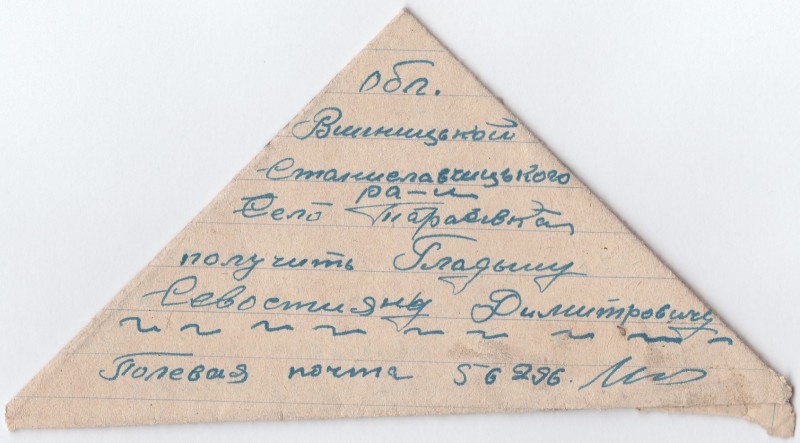 Обл.
Винницькой
Станиславчицького
ра-н
Село Тарасівка
получить Гладышу
Севостияну Димитровичу
Полевая почта 56296.